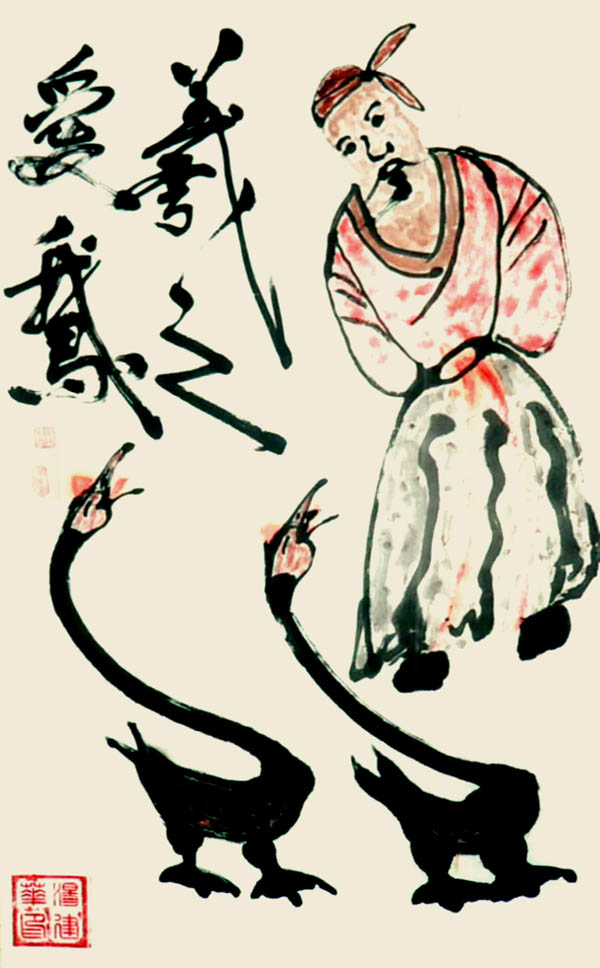 羲之
愛鵝